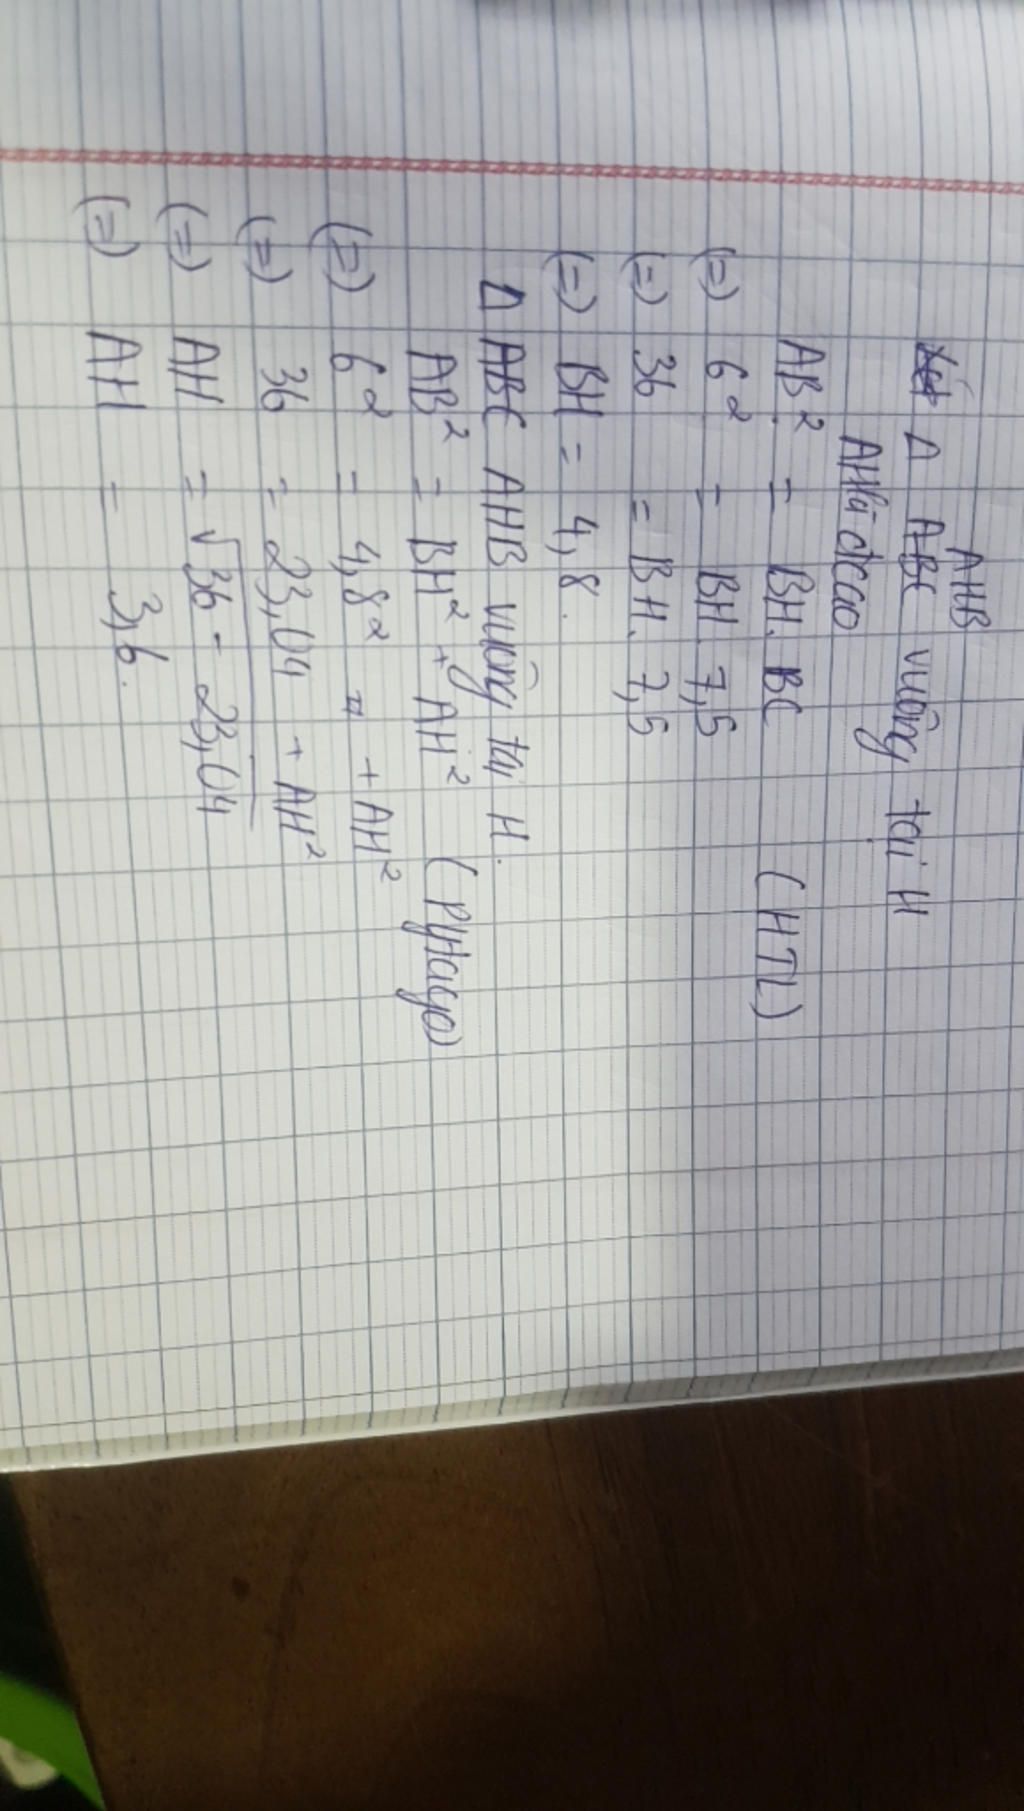 AHB
Xét Δ ABC vuông tại H
AH là đcao
AB² = BH. BC (HTL)
(=) 6² = BH. 7,5
(=) 36 = BH. 7,5
(=) BH = 4,8.
Δ ABC AHB vuông tại H.
AB² = BH² + AH² (Pytago)
(=) 6² = 4,8² = + AH²
(=) 36 = 23,04 + AH²
(=) AH = √36 - 23,04
(=) AH = 3,6.